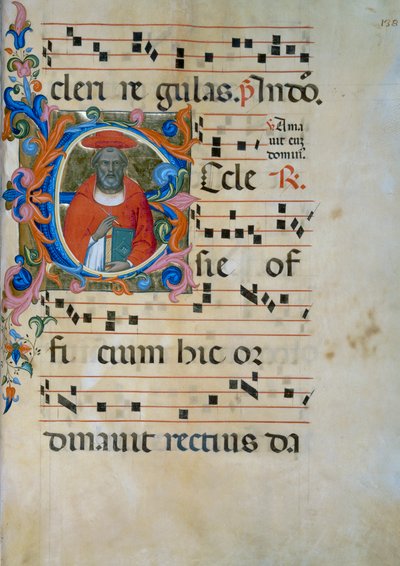 138
cleri re gulas. p̃ Indō.
℣ Ama
vit eūz
domius.
Eccle R.
sie of
fi cium hic or
dinavit rectius da